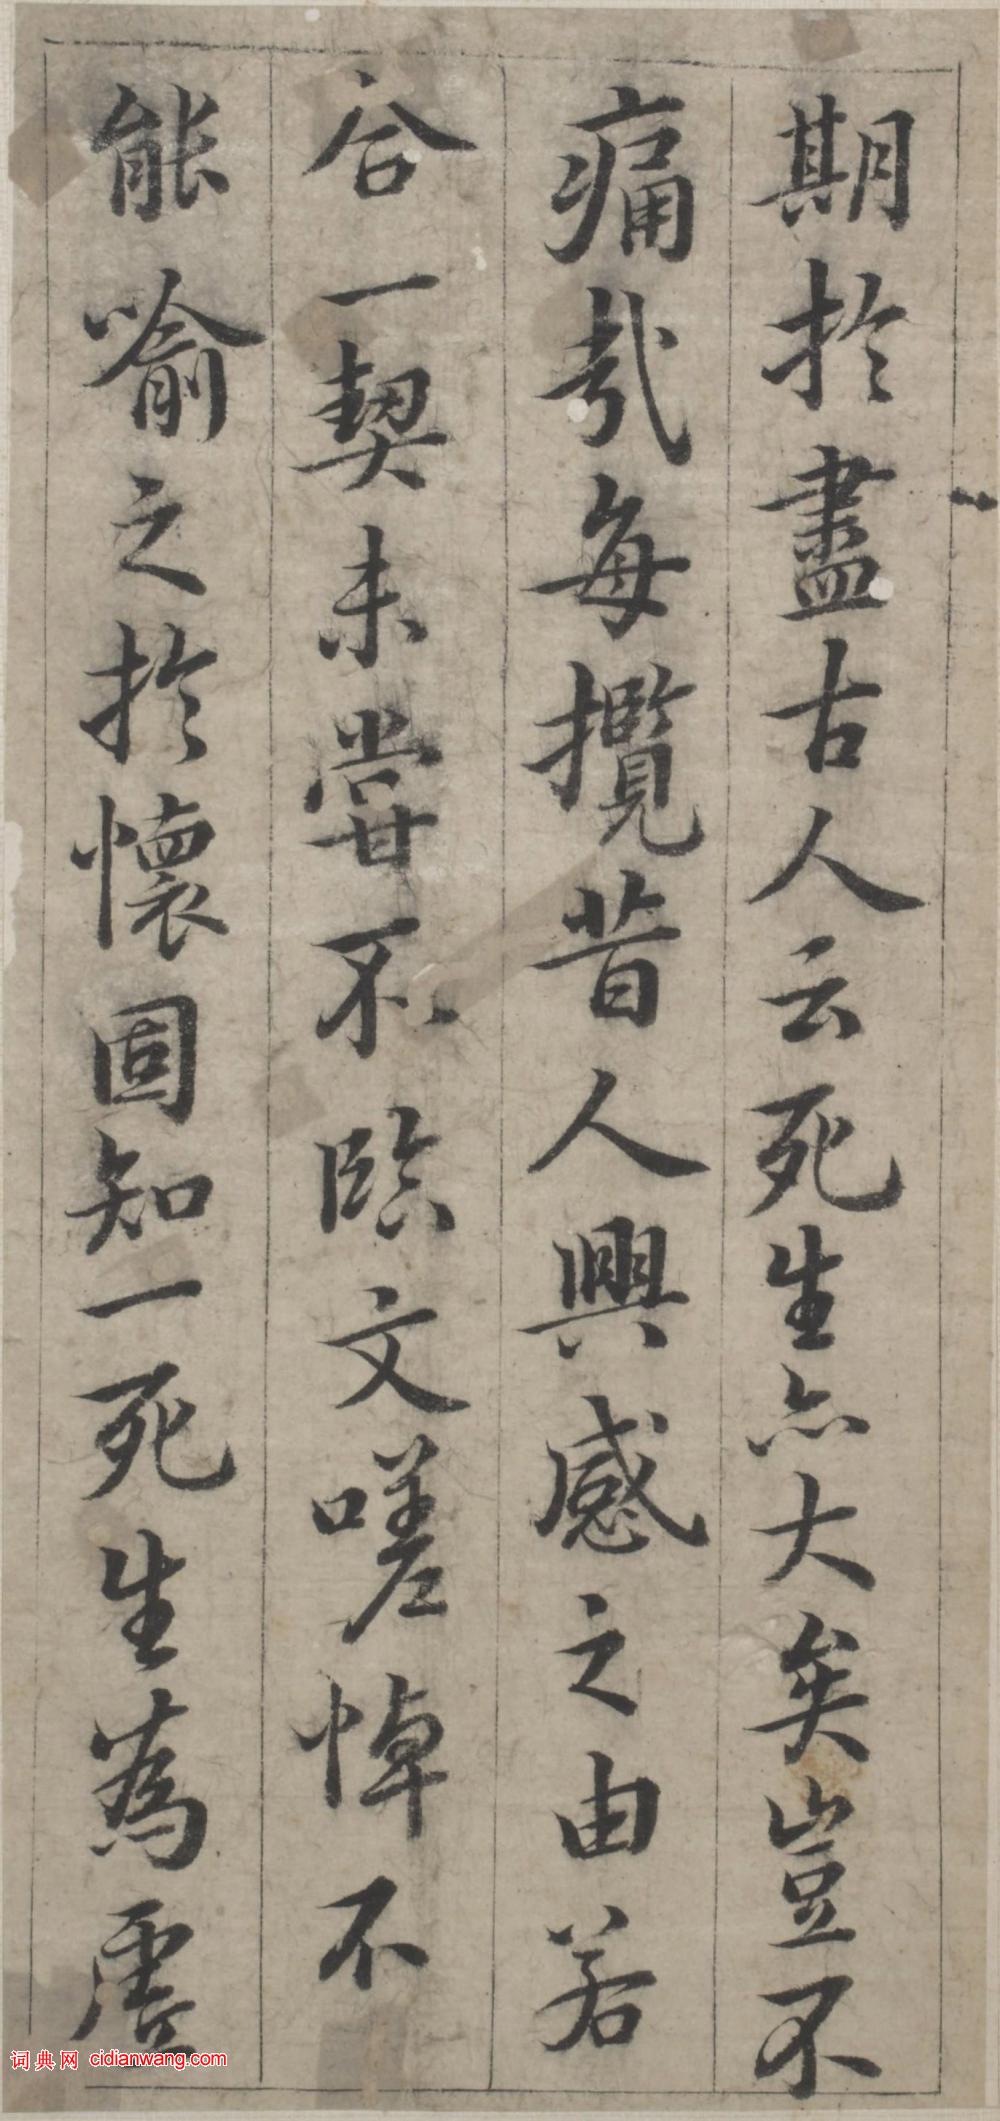 期於盡古人云死生亦大矣豈不
痛哉每攬昔人興感之由若
合一契未嘗不臨文嗟悼不
能喻之於懷固知一死生為虛
词典网 cidianwang.com